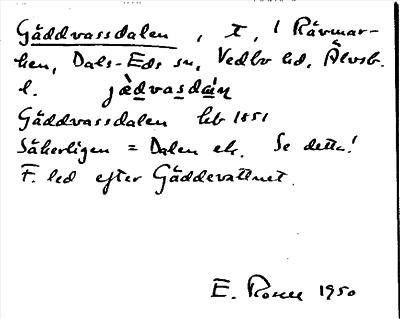 Gäddvassdalen, t, i Rävmar-
ken, Dals-Eds sn, Vedbo hd, Älvsb.
l. jæ̀dvasdán
Gäddvassdalen hfb 1851
Säkerligen = Dalen ek. Se detta!
F. led efter Gäddevattnet.
E. Rosell 1950